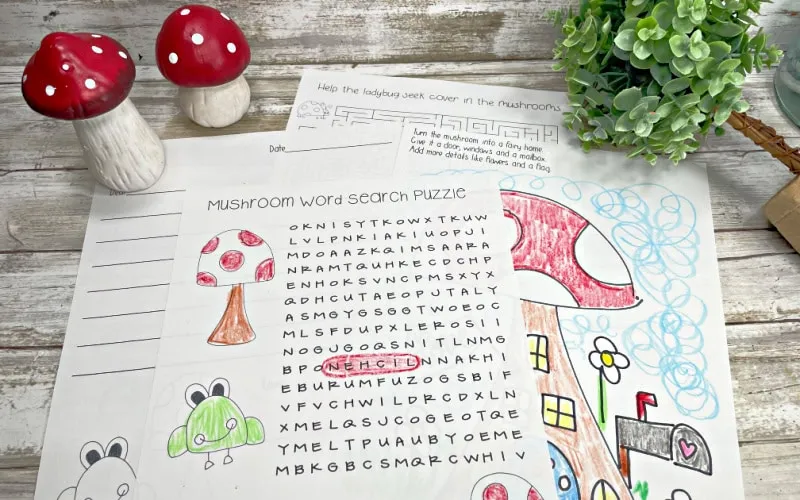 Help the ladybug seek cover in the mushrooms.
Turn the mushroom into a fairy home.
Give it a door, windows and a mailbox.
Add more details like flowers and a flag.
Date
Dear
Mushroom Word Search Puzzle
O K N I S Y T K O W X T K U W
L V L P N K I A K I U O P J I
M D O A A Z K Q I M S A A R A
N R A M T Q U H K E C D C H P
E N H O K S V N C P M S X Y X
Q D H C U T A E O P J T A L Y
A S M G Y G S G G T W O E O C
M L S F D U P X L E R O S I I
N O G J G O Q S N I T L N M G
B P O N E H C I L N N A K H I
E B U R U M F U Z O G S B I F
V F V C H W I L D R C D X L N
X M E L A S J C O G E O T Q E
Y M E L T P U A U B Y O E M E
M B K G B C S M Q R C W H I V